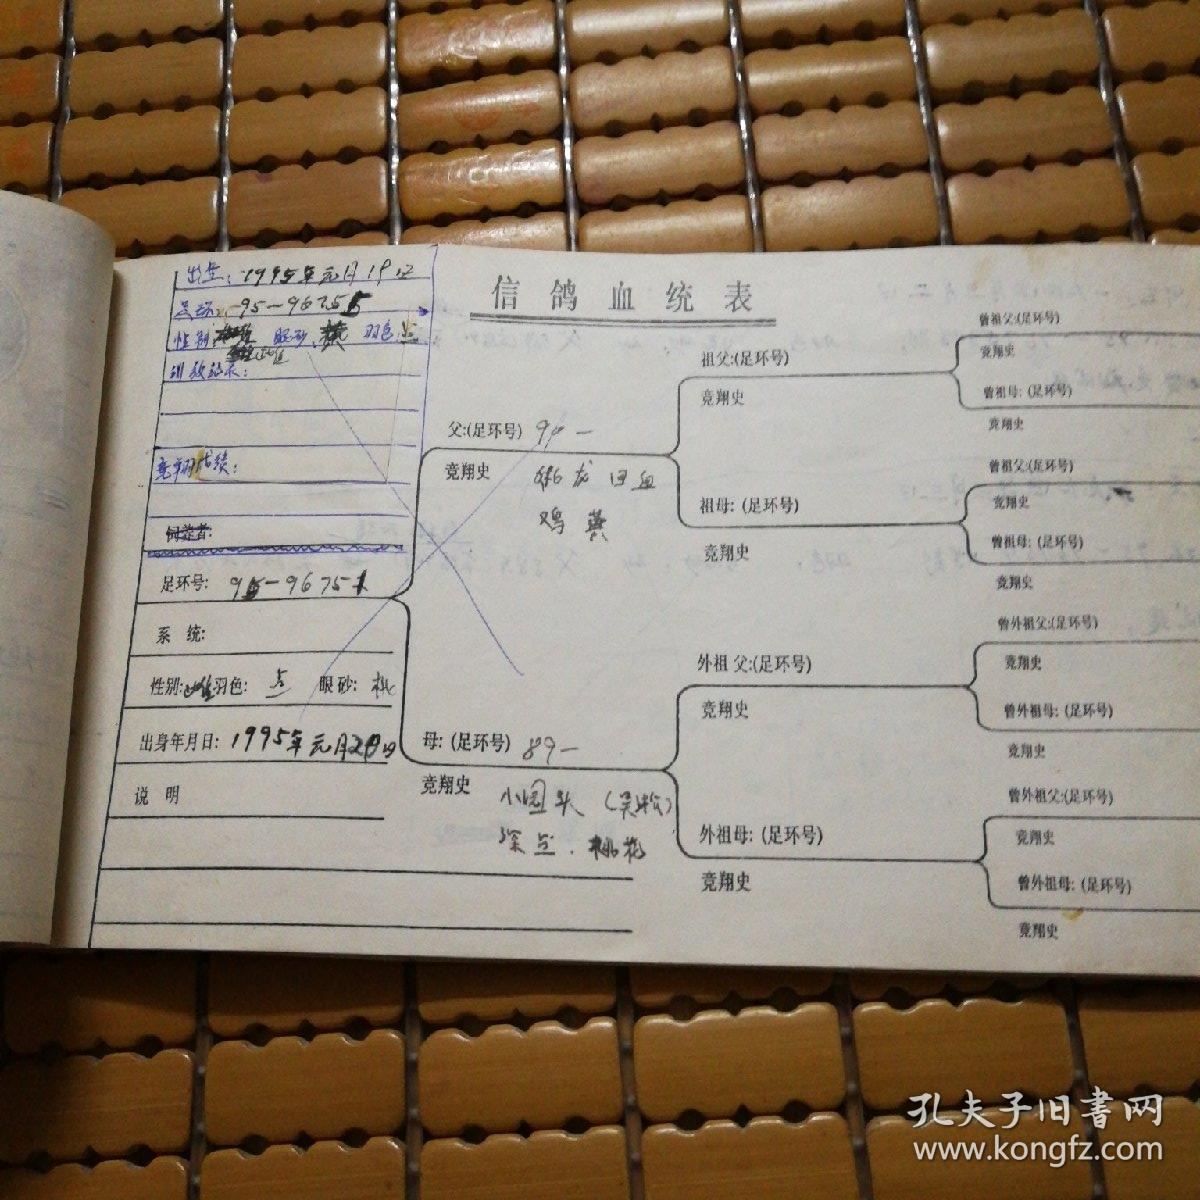 信鸽血统表
出生：1995年元月19日
足环：-95-96755
性别 眼砂 羽色
训放站表：
竞翔成绩：
饲养者：
足环号：95-96751
系统：
性别： 羽色： 眼砂：桃
出身年月日：1995年元月20日
说明
父：(足环号)
竞翔史
回血
鸡黄
母：(足环号) 89-
竞翔史
小园头（吴淞）
深 桃花
祖父：(足环号)
竞翔史
祖母：(足环号)
竞翔史
外祖父：(足环号)
竞翔史
外祖母：(足环号)
竞翔史
曾祖父：(足环号)
竞翔史
曾祖母：(足环号)
竞翔史
曾祖父：(足环号)
竞翔史
曾祖母：(足环号)
竞翔史
曾外祖父：(足环号)
竞翔史
曾外祖母：(足环号)
竞翔史
曾外祖父：(足环号)
竞翔史
曾外祖母：(足环号)
竞翔史
孔夫子旧書网
www.kongfz.com